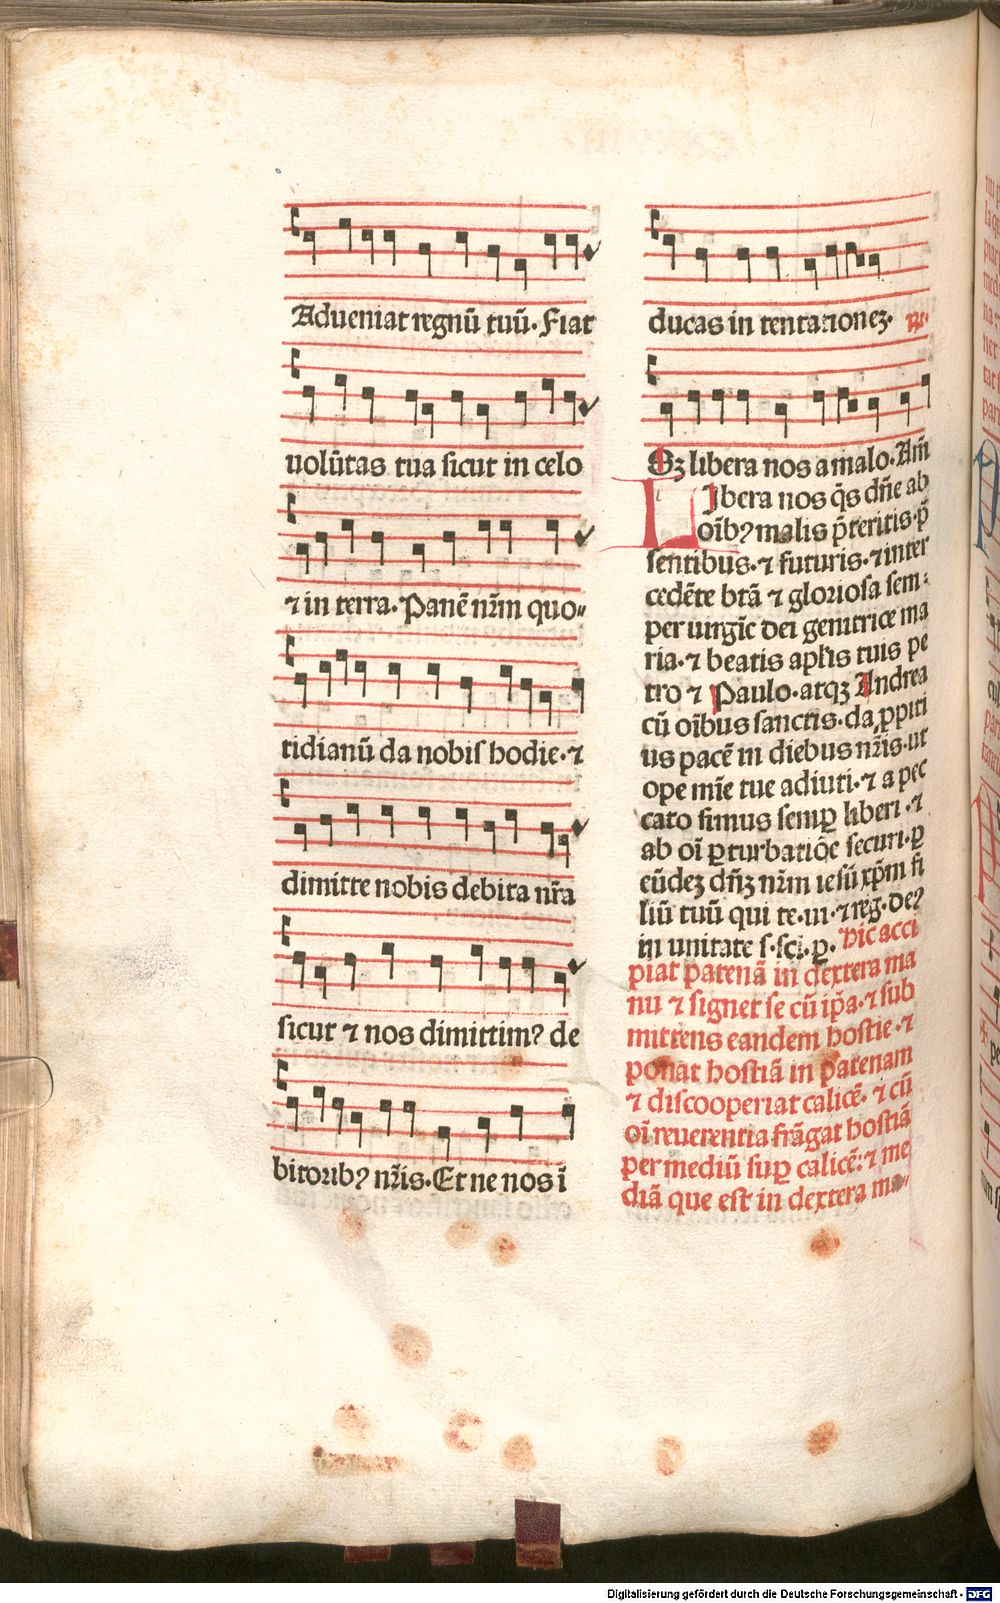 Adueniat regnū tuū. Fiat
volūtas tua sicut in celo
⁊ in terra. Panē nr̄m quo〃
tidianū da nobis hodie. ⁊
dimitte nobis debita nr̄a
sicut ⁊ nos dimittimꝰ de
bitoribꝰ nr̄is. Et ne nos ī
ducas in tentationeꝫ. ꝶ.
Sꝫ libera nos a malo. Am̄
LIbera nos q̄s dn̄e ab
oībꝰ malis p̄teritis. p̄
sentibus. ⁊ futuris. ⁊ inter
cedēte btā ⁊ gloriosa sem:
per virgīe dei genitrice ma
ria. ⁊ beatis apl̄is tuis pe
tro ⁊ Paulo. atqꝫ Andrea
cū oībus sanctis. da ꝓpiti
us pacē in diebus nr̄is. ut
ope mīe tue adiuti. ⁊ a pec
cato simus semꝑ liberi. ⁊
ab oī ꝑturbatiōe securi. ꝑ
eūdeꝫ dn̄ꝫ nr̄m iesū xp̄m fi
liū tuū qui te. ui. ⁊ reg. deꝰ
in unitate s. sci. ꝑ. Hic acci
piat patenā in dextera ma
nu ⁊ signet se cū ip̄a. ⁊ sub
mittens eandem hostie. ⁊
ponat hostiā in patenam
⁊ discooperiat calicē. ⁊ cū
oī reuerentia frāgat hostiā
per mediū suꝑ calicē: ⁊ me
diā que est in dextera ma〃
Digitalisierung gefördert durch die Deutsche Forschungsgemeinschaft - DFG